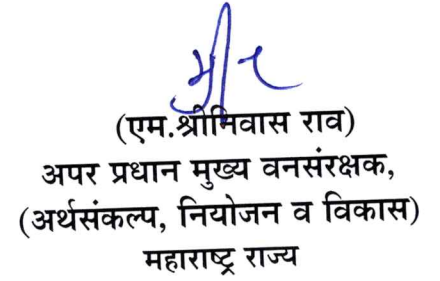 (एम.श्रीनिवास राव)
अपर प्रधान मुख्य वनसंरक्षक,
(अर्थसंकल्प, नियोजन व विकास)
महाराष्ट्र राज्य